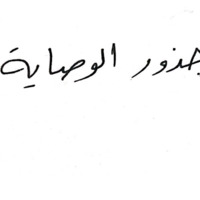 جذور الوصاية